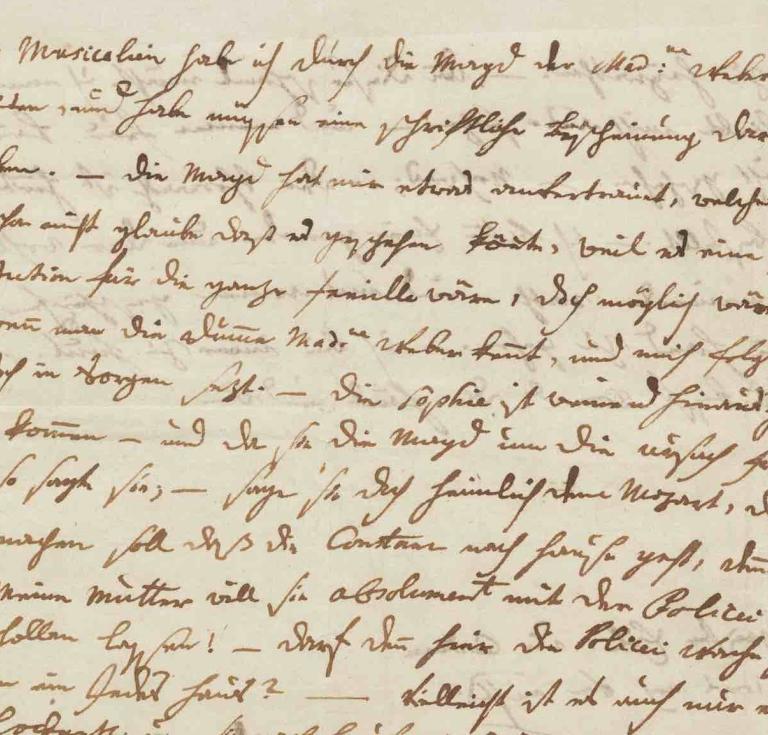 Musicalien habe ich durch die Magd der Mad:me Weber
und habe müssen eine schriftliche bescheinung dar
ben. — die Magd hat mir etwas anvertrauet, welches
schon nicht glaube daß es geschehen könte, weil es eine
tution für die ganze familie wäre, doch möglich wär
wenn man die dumme Mad:me Weber kennt, und mich folg
ch in Sorgen setzt. — die Sophie ist weinend hinaus
kommen — und da sie die Magd um die ursach
so sagte sie; — sage sie doch heimlich dem Mozart, d
machen soll daß die Constanz nach hause geht, denn
Meine Mutter will sie absolument mit der Policei
hollen lassen! — darf denn hier die Policei wache
in ein Jedes haus? — Vielleicht ist es auch nur